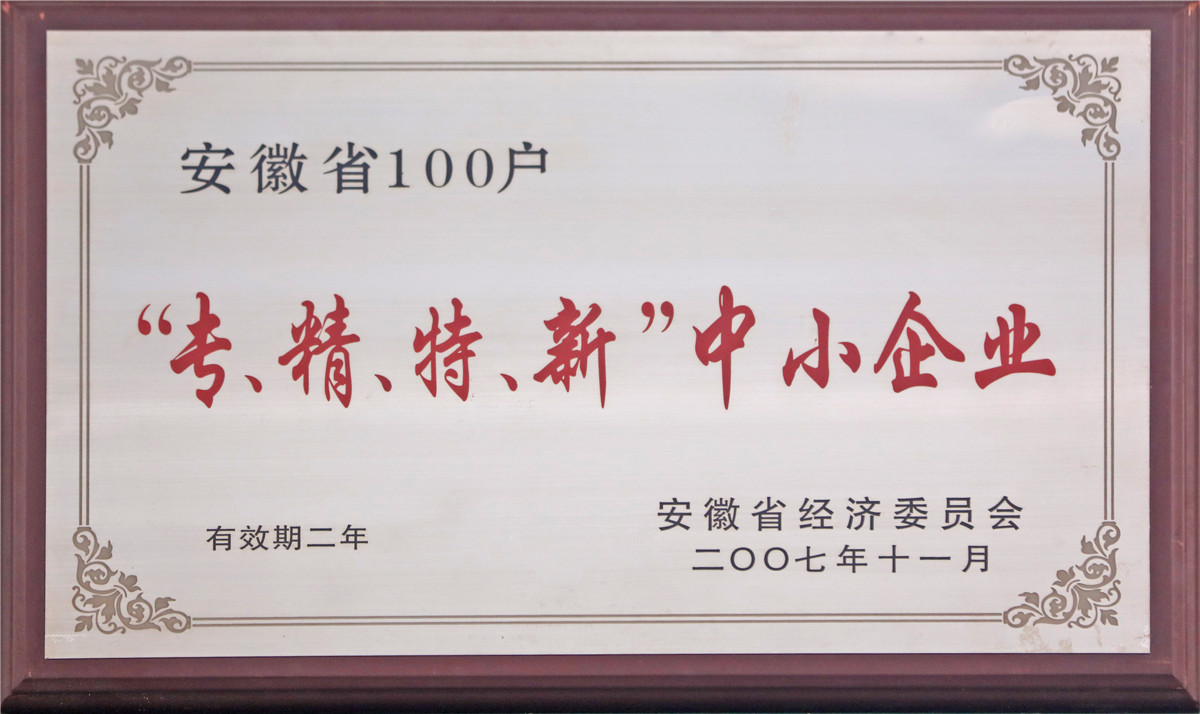 安徽省100户
“专、精、特、新”中小企业
有效期二年
安徽省经济委员会
二〇〇七年十一月